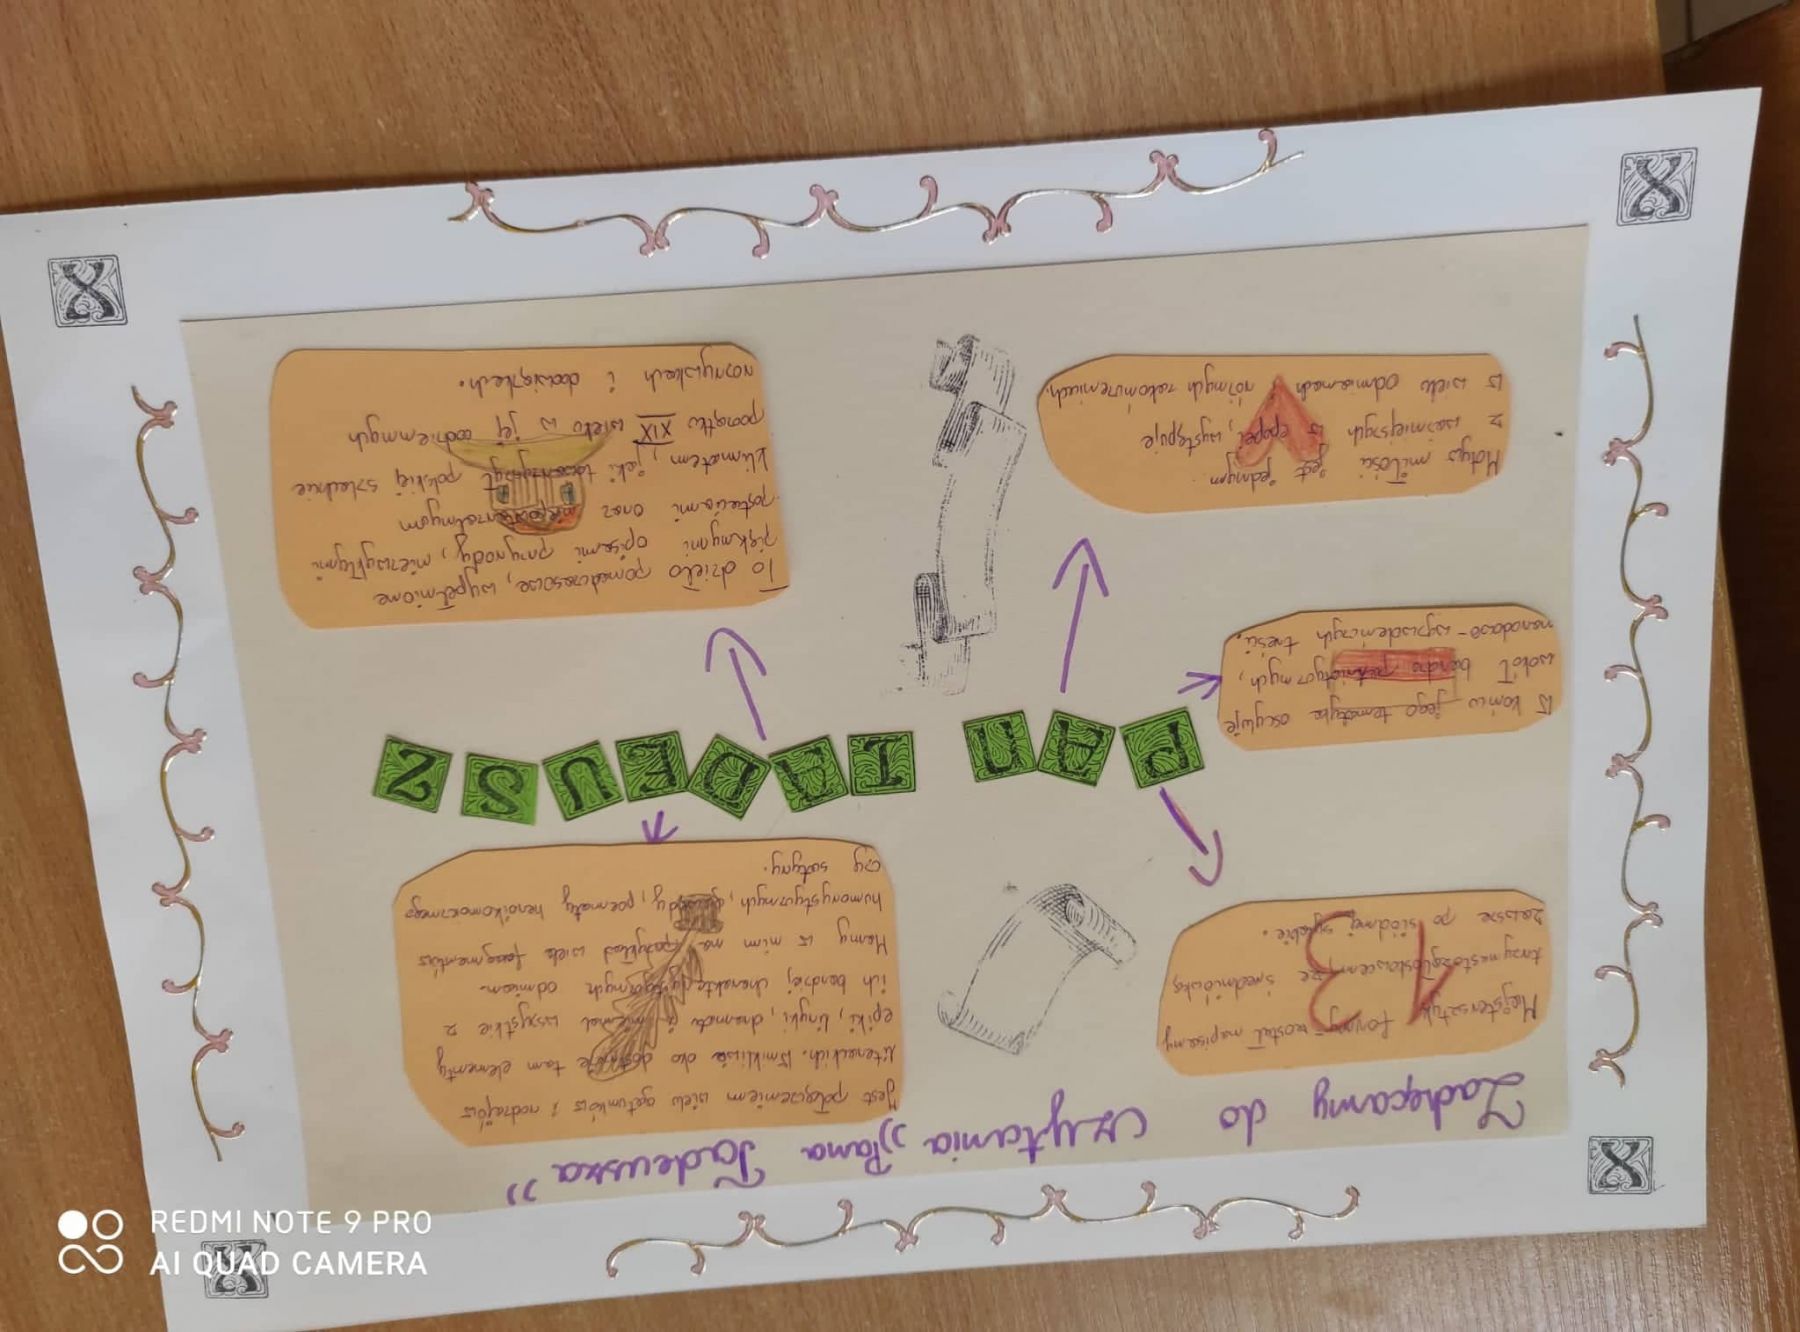 Zachęcamy do czytania „Pana Tadeusza"
Majstersztyk formy - został napisany
trzynastozgłoskowcem, ze średniówką
zawsze po siódmej sylabie.
13
Jest połączeniem wielu gatunków i rodzajów
literackich. Wnikliwe oko dostrzeże tam elementy
epiki, liryki, dramatu i niemal wszystkie z
ich bardziej charakterystycznych odmian.
Mamy w nim na przykład wiele fragmentów
humorystycznych, gawędy, poematy heroikomicznego
czy satyry.
PAN TADEUSZ
W końcu jego tematyka oscyluje
wokół bardzo patriotycznych,
narodowo-wyzwoleńczych treści.
Motyw miłości jest jednym
z ważniejszych w epopei, występuje
w wielu odmianach różnych
To dzieło ponadczasowe, wypełnione
pięknymi opisami przyrody, niezwykłymi
postaciami oraz niepowtarzalnym
klimatem, jaki towarzyszył polskiej szlachcie
początku XIX wieku w jej codziennych
rozrywkach i
X
X
X
X
REDMI NOTE 9 PRO
AI QUAD CAMERA